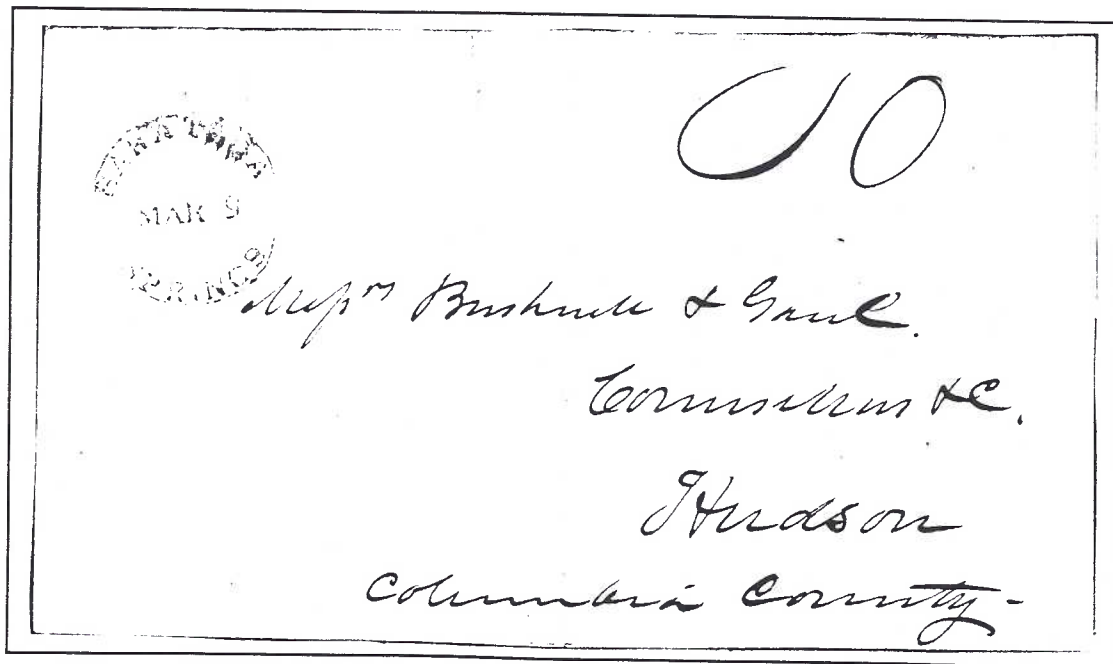 10
SARATOGA
MAR 9
SPRINGS
Messrs Bushnell & Gaul.
Counsellors &C.
Hudson
Columbia County -